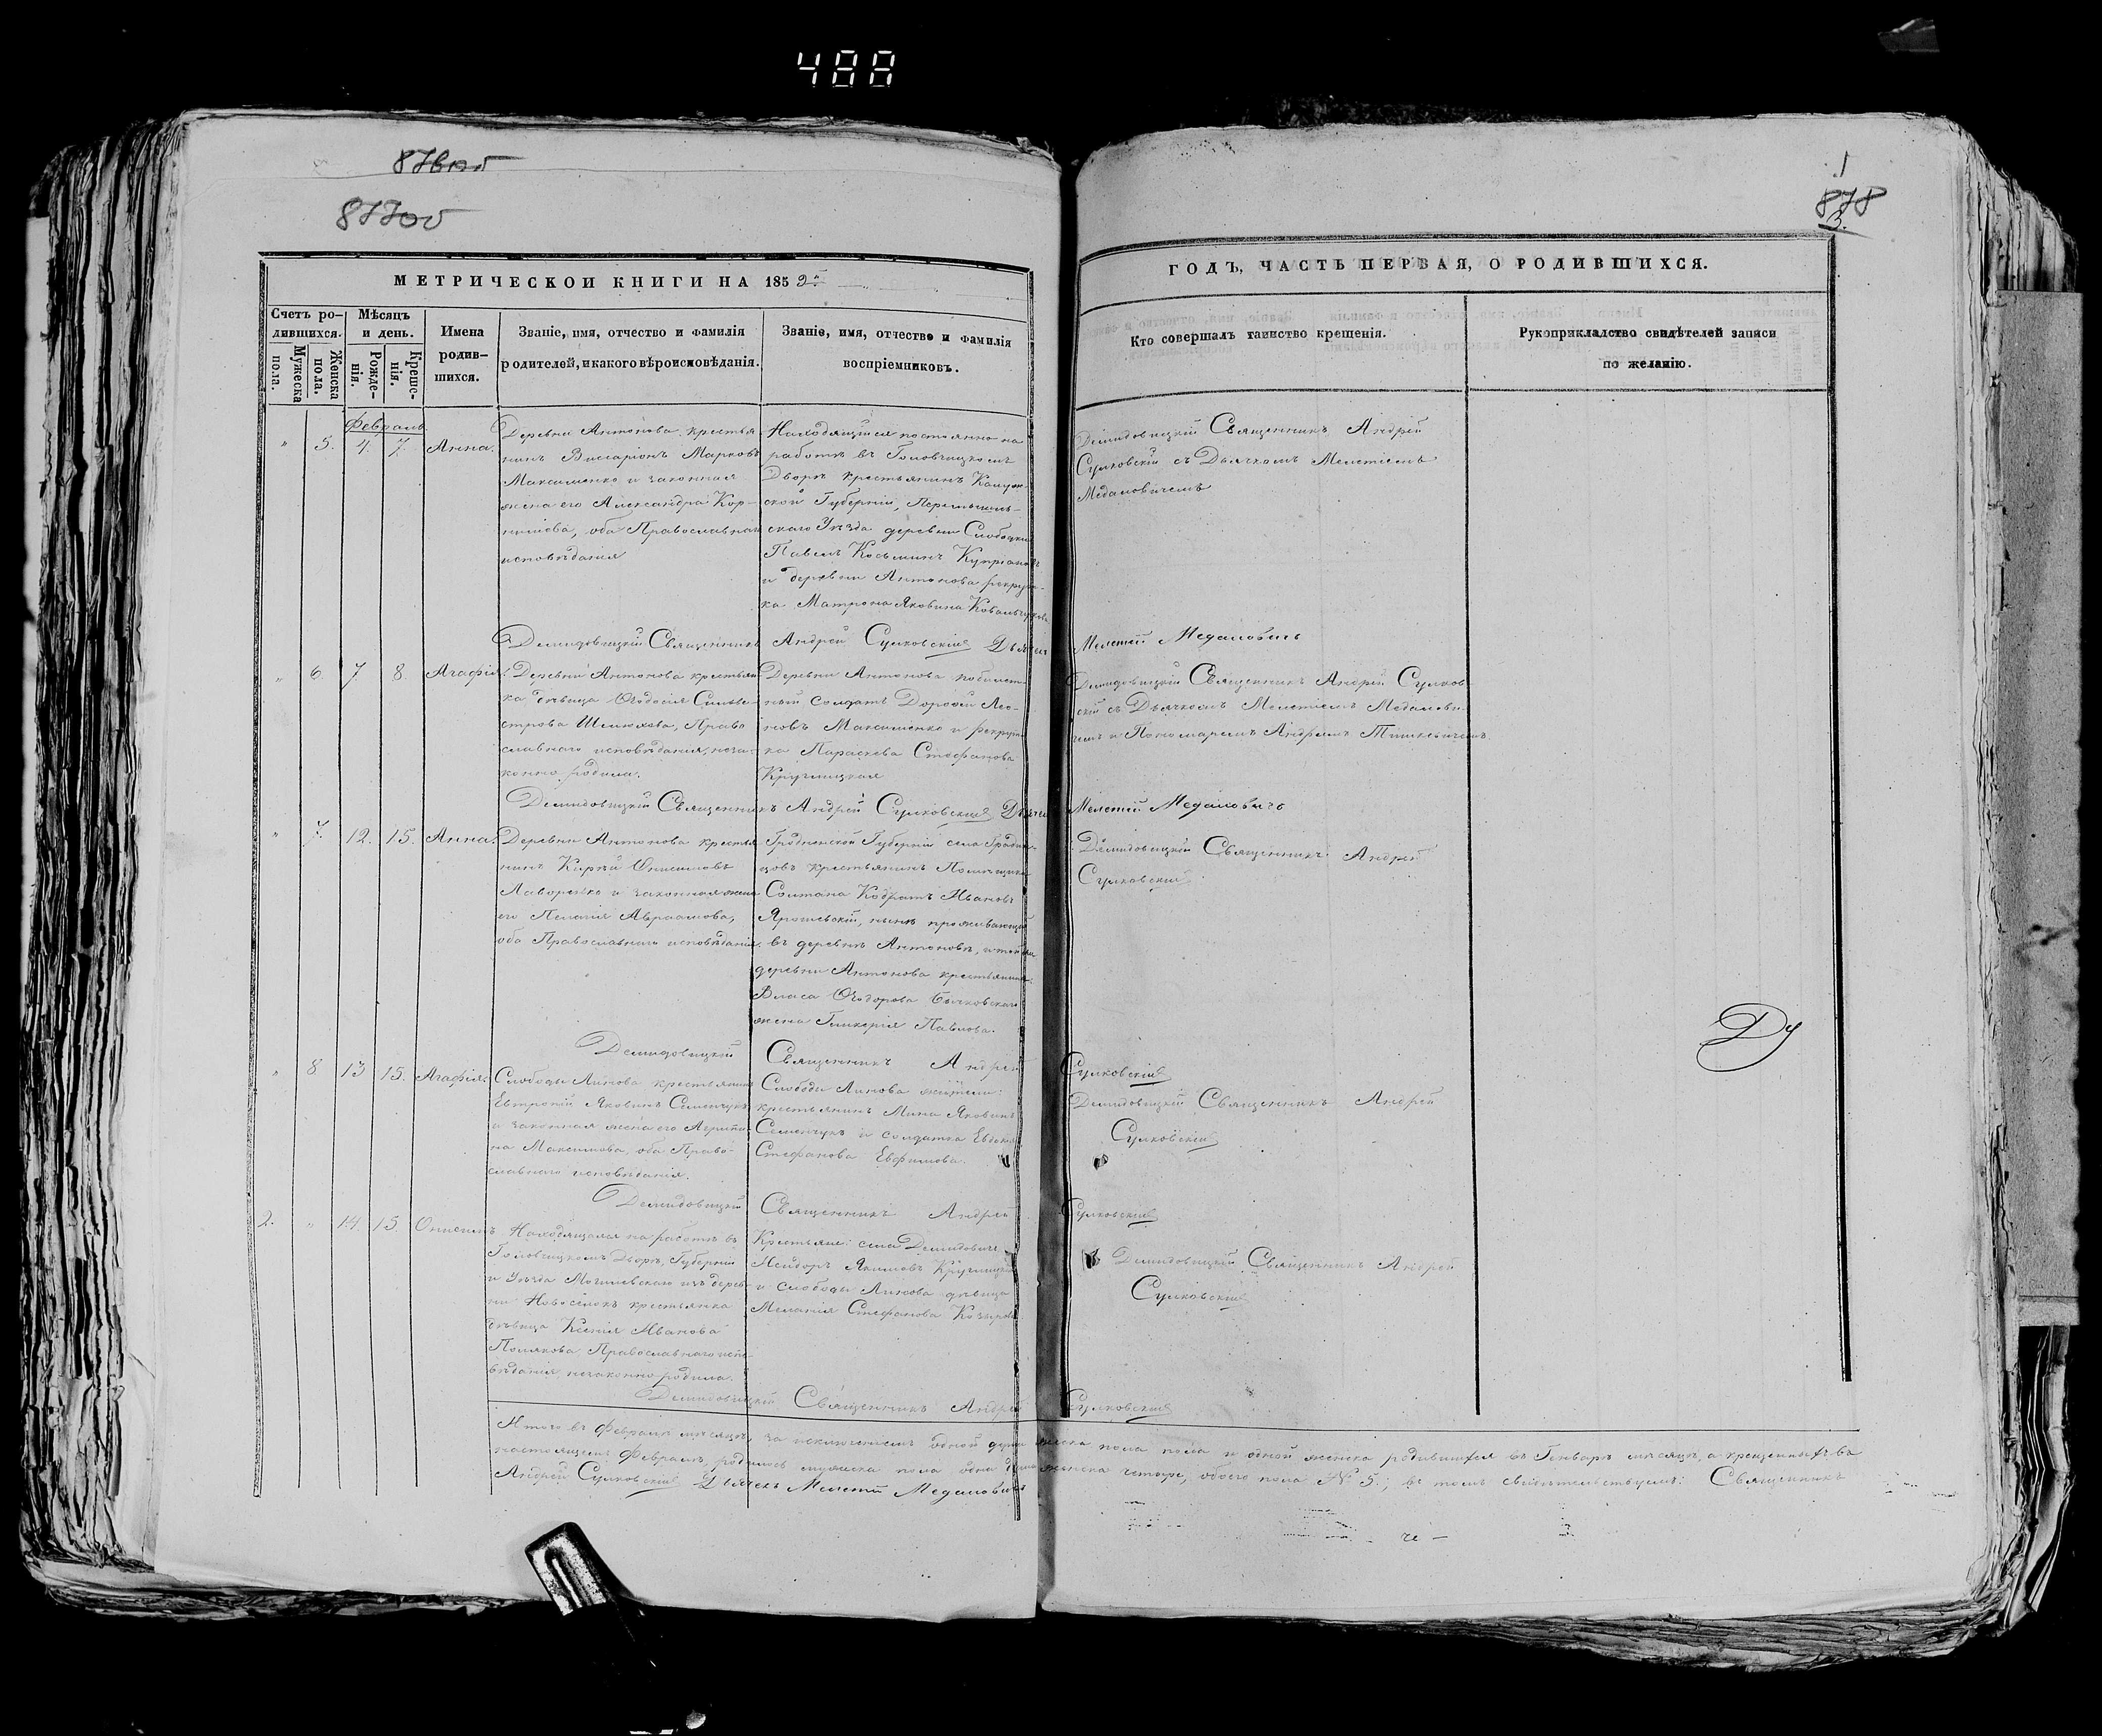 488
876об
877об
1
878
3.
МЕТРИЧЕСКОЙ КНИГИ НА 1859й
ГОДЪ, ЧАСТЬ ПЕРВАЯ, О РОДИВШИХСЯ.
Счетъ ро-
дившихся.
Мужеска
пола.
Женска
пола.
Мѣсяцъ
и день.
Рожде-
нія.
Креще-
нія.
Имена
родив-
шихся.
Званіе, имя, отчество и фамилія
родителей, и какого вѣроисповѣданія.
Званіе, имя, отчество и фамилія
воспріемниковъ.
Кто совершалъ таинство крещенія.
Рукоприкладство свидѣтелей записи
по желанію.
Февраль
" 5. 4. 7. Анна.
Деревни Антонова крестья
нинъ Виссаріонъ Марковъ
Максименко и законная
жена его Александра Кор-
ниліева, оба Православнаго
исповѣданія
Находящійся постоянно на
работѣ въ Головчицкомъ
Дворѣ крестьянинъ Калуж-
ской Губерніи, Перемышль-
скаго Уѣзда деревни Слободки
Павелъ Косьминъ Купріановъ
и деревни Антонова рекрут-
ка Матрона Яковина Ковальчукова
Демидовицкій Священникъ Андрей
Сулковскій съ Дьячкомъ Мелетіемъ
Медаловичемъ
Демидовицкій Священникъ Андрей Сулковскій Дьячекъ Мелетій Медаловичъ
" 6. 7 8. Агафія.
Деревни Антонова крестьян
ка дѣвица Ѳеодосія Сильве-
строва Шелюхова, Право
славнаго исповѣданія, неза-
конно родила.
Деревни Антонова
ный солдатъ Дороѳей Лео-
новъ Максименко и рекрут
ка Параскева Стефанова
Круглицкая
Демидовицкій Священникъ Андрей Сулков
скій съ Дьячкомъ Мелетіемъ Медалови-
чемъ и Пономаремъ Андреемъ Тишкевичемъ.
Демидовицкій Священникъ Андрей Сулковскій Дьячекъ Мелетій Медаловичъ
" 7. 12. 15. Анна.
Деревни Антонова крестья
нинъ Киръ Онисимовъ
Лавориенко и законная жена
его Пелагія Авраамова,
оба Православнаго исповѣданія.
Гродненской Губерніи села
цовъ крестьянинъ Помѣщика
Солтана Кодратъ Ивановъ
Ярошевскій, нынѣ проживающій
въ деревнѣ Антоновѣ, и той же
деревни Антонова крестьянина
Власа Ѳеодорова Бычковскаго
жена Гликерія Павлова.
Демидовицкій Священникъ Андрей
Сулковскій
Демидовицкій Священникъ Андрей Сулковскій
" 8 13 15. Агафія.
Слободы Линова крестьянинъ
Евтропій Яковинъ Семенчукъ
и законная жена его Агрипи-
на Максимова, оба Право-
славнаго исповѣданія.
Слободы Линова жители:
крестьянинъ Мина Яковинъ
Семенчукъ и солдатка Евдокія
Стефанова Евфимова.
Демидовицкій Священникъ Андрей
Сулковскій
Демидовицкій Священникъ Андрей Сулковскій
2. " 14. 15. Онисимъ
Находящаяся на работѣ въ
Головчицкомъ Дворѣ, Губерніи
и Уѣзда Могилевскаго изъ дерев-
ни Новоселокъ крестьянка
дѣвица Ксенія Иванова
Полякова Православнаго испо
вѣданія незаконно родила.
Крестьяне: села Демидовичъ
Исидоръ Якимовъ Круглицкій
и слободы Линова дѣвица
Меланія Стефанова Козырова
Демидовицкій Священникъ Андрей
Сулковскій
Демидовицкій Священникъ Андрей Сулковскій
Итого въ Февралѣ мѣсяцѣ, за исключеніемъ одной души мужска пола пола и одной женска родившихся въ Генварѣ мѣсяцѣ, а крещенныхъ въ
настоящемъ Февралѣ, родилось мужеска пола одна душа женска четыре, обоего пола № 5.; въ томъ свидѣтельствуемъ: Священникъ
Андрей Сулковскій Дьячекъ Мелетій Медаловичъ